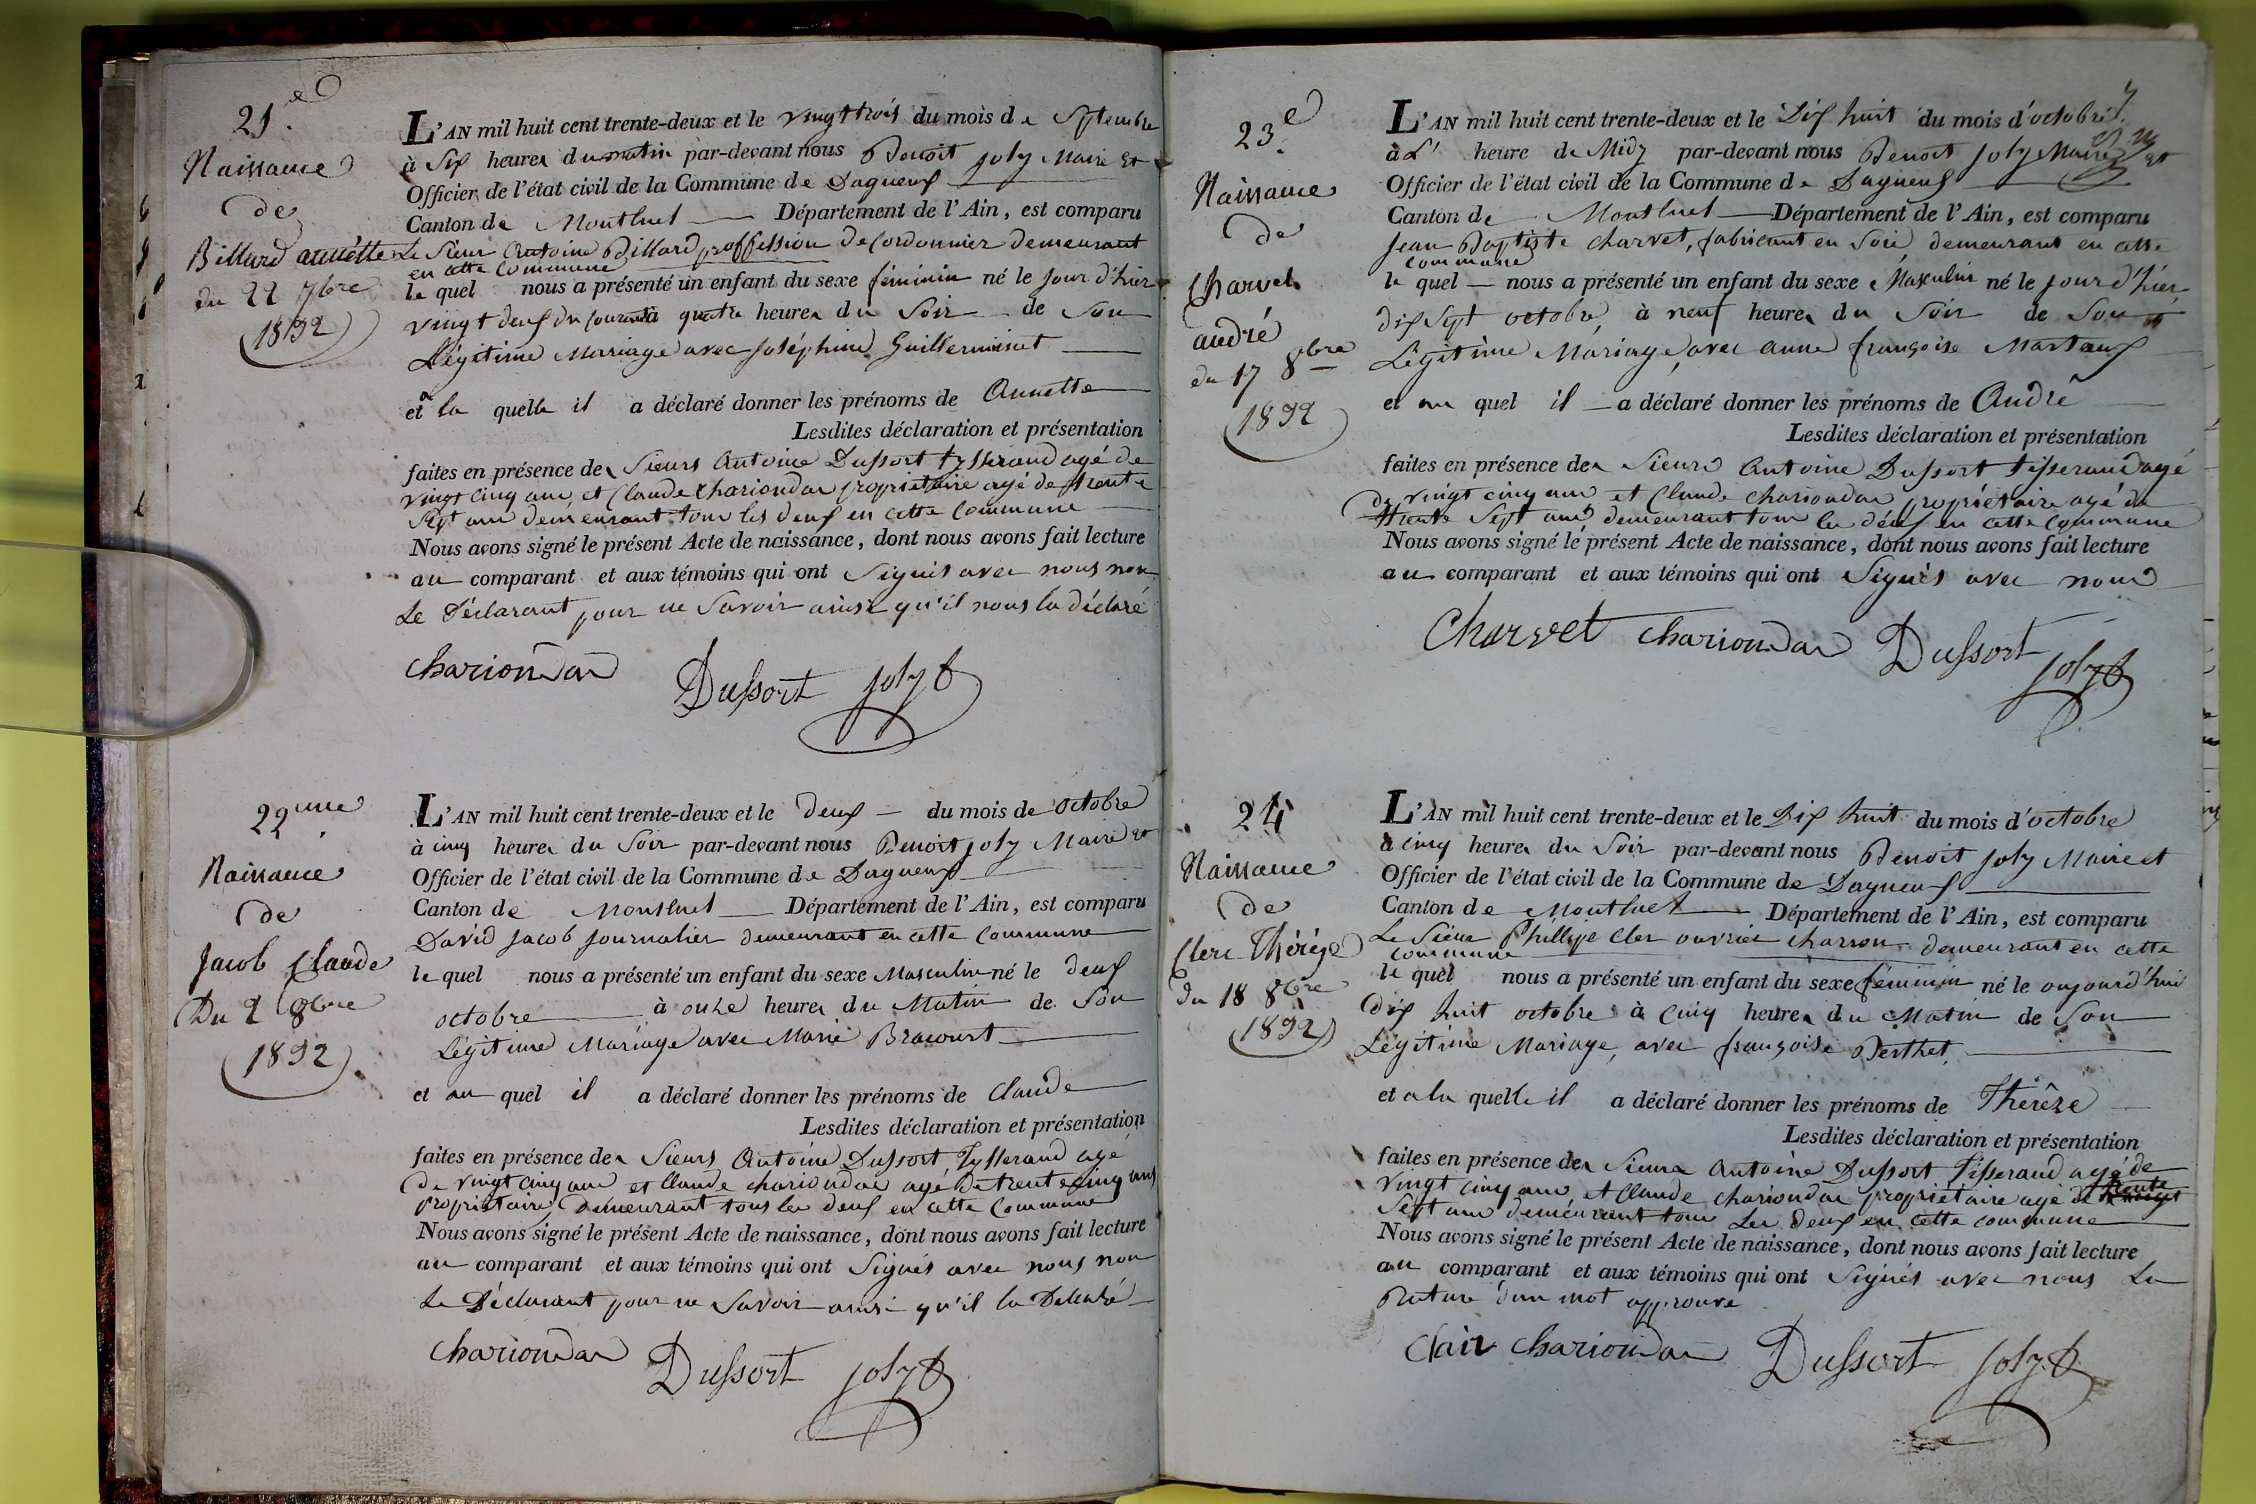 21.e
Naissance
de
Billard annétte
du 22 7bre
1832
L'AN mil huit cent trente-deux et le vingt trois du mois de Septembre
à Six heures du matin par-devant nous Benoit Joly Maire Et
Officier de l'état civil de la Commune de Dagneux
Canton de Montluel Département de l'Ain, est comparu
Le Sieur Antoine Billard proffession de Cordonnier demeurant
en cette Commune
le quel nous a présenté un enfant du sexe féminin né le jour d'hier
vingt deux du courant à quatre heures du Soir de Son
Légitime Marriage avec Joséphine Guillerminet
et a la quelle il a déclaré donner les prénoms de Annette
Lesdites déclaration et présentation
faites en présence des Sieurs Antoine Dussort tysserand agé de
vingt cinq ans et Claude Chariondas propriétaire agé de trente
Sept ans demeurant tous les deux en cette Commune
Nous avons signé le présent Acte de naissance, dont nous avons fait lecture
au comparant et aux témoins qui ont Signés avec nous non
Le Déclarant pour ne Savoir ainsi qu'il nous la déclaré
Chariondas Dussort Joly B
22eme
Naissance
de
Jacob Claude
Du 2 8bre
1832
L'AN mil huit cent trente-deux et le deux du mois de Octobre
à cinq heures du Soir par-devant nous Benoit Joly Maire et
Officier de l'état civil de la Commune de Dagneux
Canton de Montluel Département de l'Ain, est comparu
David Jacob Journalier demeurant en cette Commune
le quel nous a présenté un enfant du sexe Masculin né le deux
octobre à onze heures du Matin de Son
Légitime Mariage avec Marie Bracourt
et au quel il a déclaré donner les prénoms de Claude
Lesdites déclaration et présentation
faites en présence des Sieurs Antoine Dussort Tysserand agé
de vingt cinq ans et Claude chariondas agé de trente cinq ans
propriétaire, demeurant tous les deux en cette Commune
Nous avons signé le présent Acte de naissance, dont nous avons fait lecture
au comparant et aux témoins qui ont Signés avec nous non
Le Déclarant pour ne Savoir ainsi qu'il la
Chariondas Dussort Joly B
23.e
Naissance
de
Charvet
andré
du 17 8bre
1832
L'AN mil huit cent trente-deux et le Dix huit du mois d'octobre
à L' heure de Midy par-devant nous Benoit Joly Maire et
Officier de l'état civil de la Commune de Dagneux
Canton de Montluel Département de l'Ain, est comparu
Jean Baptiste Charvet, fabricant en Soie, demeurant en cette
commune
le quel nous a présenté un enfant du sexe Masculin né le jour d'hier
dix Sept octobre à neuf heures du Soir de Son
Légitime Mariage, avec anne françoise Martaux
et au quel il a déclaré donner les prénoms de André
Lesdites déclaration et présentation
faites en présence des Sieurs Antoine Dussort tisserand agé
de vingt cinq ans et Claude Chariondas propriétaire agé de
trente Sept ans demeurant tous les deux en cette Commune
Nous avons signé le présent Acte de naissance, dont nous avons fait lecture
au comparant et aux témoins qui ont Signés avec nous
Charvet Chariondas Dussort Joly B
24
Naissance
de
Clerc Thérèse
du 18 8bre
1832
L'AN mil huit cent trente-deux et le Dix huit du mois d'octobre
à cinq heures du Soir par-devant nous Benoit Joly Maire et
Officier de l'état civil de la Commune de Dagneux
Canton de Montluel Département de l'Ain, est comparu
Le Sieur Phillipe Cler ouvrier charron demeurant en cette
commune
le quel nous a présenté un enfant du sexe féminin né le aujourd'hui
dix huit octobre à Cinq heures du Matin de Son
Légitime Mariage, avec françoise Berthet
et a la quelle il a déclaré donner les prénoms de Thérèse
Lesdites déclaration et présentation
faites en présence des Sieurs Antoine Dussort Tisserand agé de
vingt cinq ans, et Claude Chariondas propriétaire agé de trente
Sept ans demeurant tous Les deux en cette commune
Nous avons signé le présent Acte de naissance, dont nous avons fait lecture
au comparant et aux témoins qui ont Signés avec nous La
Rature d'un mot approuve
Clair Chariondas Dussort Joly B